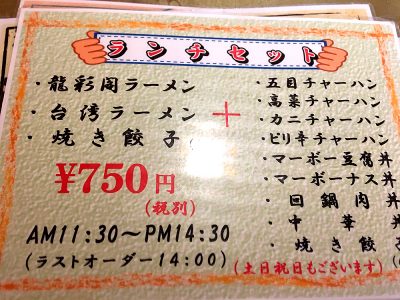 ランチセット
・龍彩閣ラーメン
・台湾ラーメン
・焼き餃子(
¥750円
(税別)
AM11:30～PM14:30
(ラストオーダー14:00)
+
・五目チャーハン
・高菜チャーハン
・カニチャーハン
・ピリ辛チャーハン
・マーボー豆腐丼
・マーボーナス丼
・回鍋肉丼
・中華丼
・焼き餃子
(土日祝日もございます)